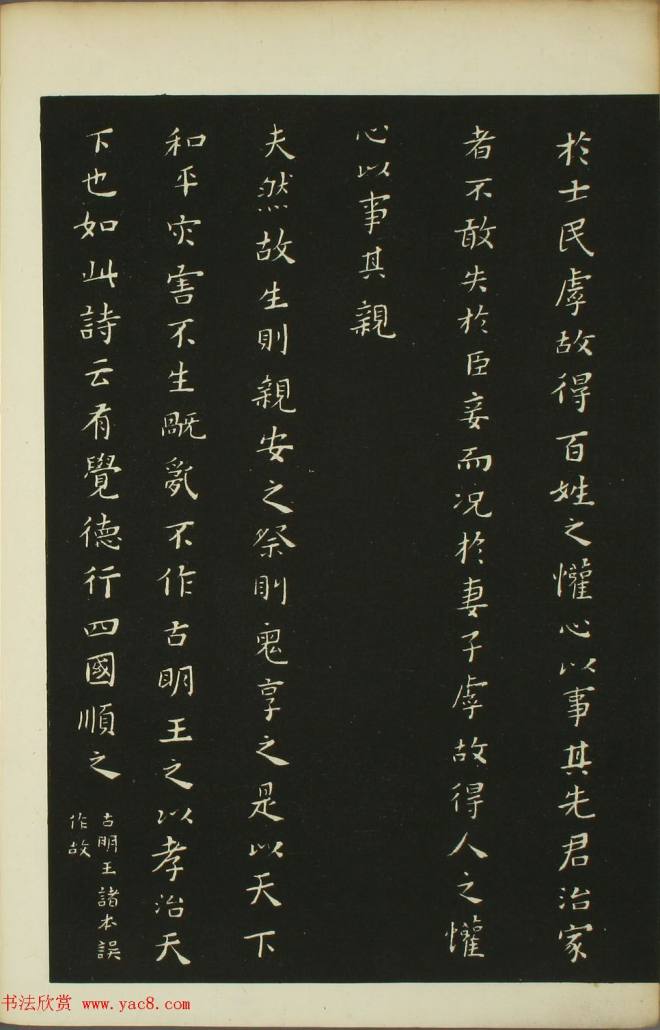 於士民虖故得百姓之懽心以事其先君治家
者不敢失於臣妾而况於妻子虖故得人之懽
心以事其親
夫然故生則親安之祭則鬼享之是以天下
和平灾害不生既亂不作古明王之以孝治天
下也如此詩云有覺德行四國順之
古明王諸本誤
作故
书法欣赏 www.yac8.com